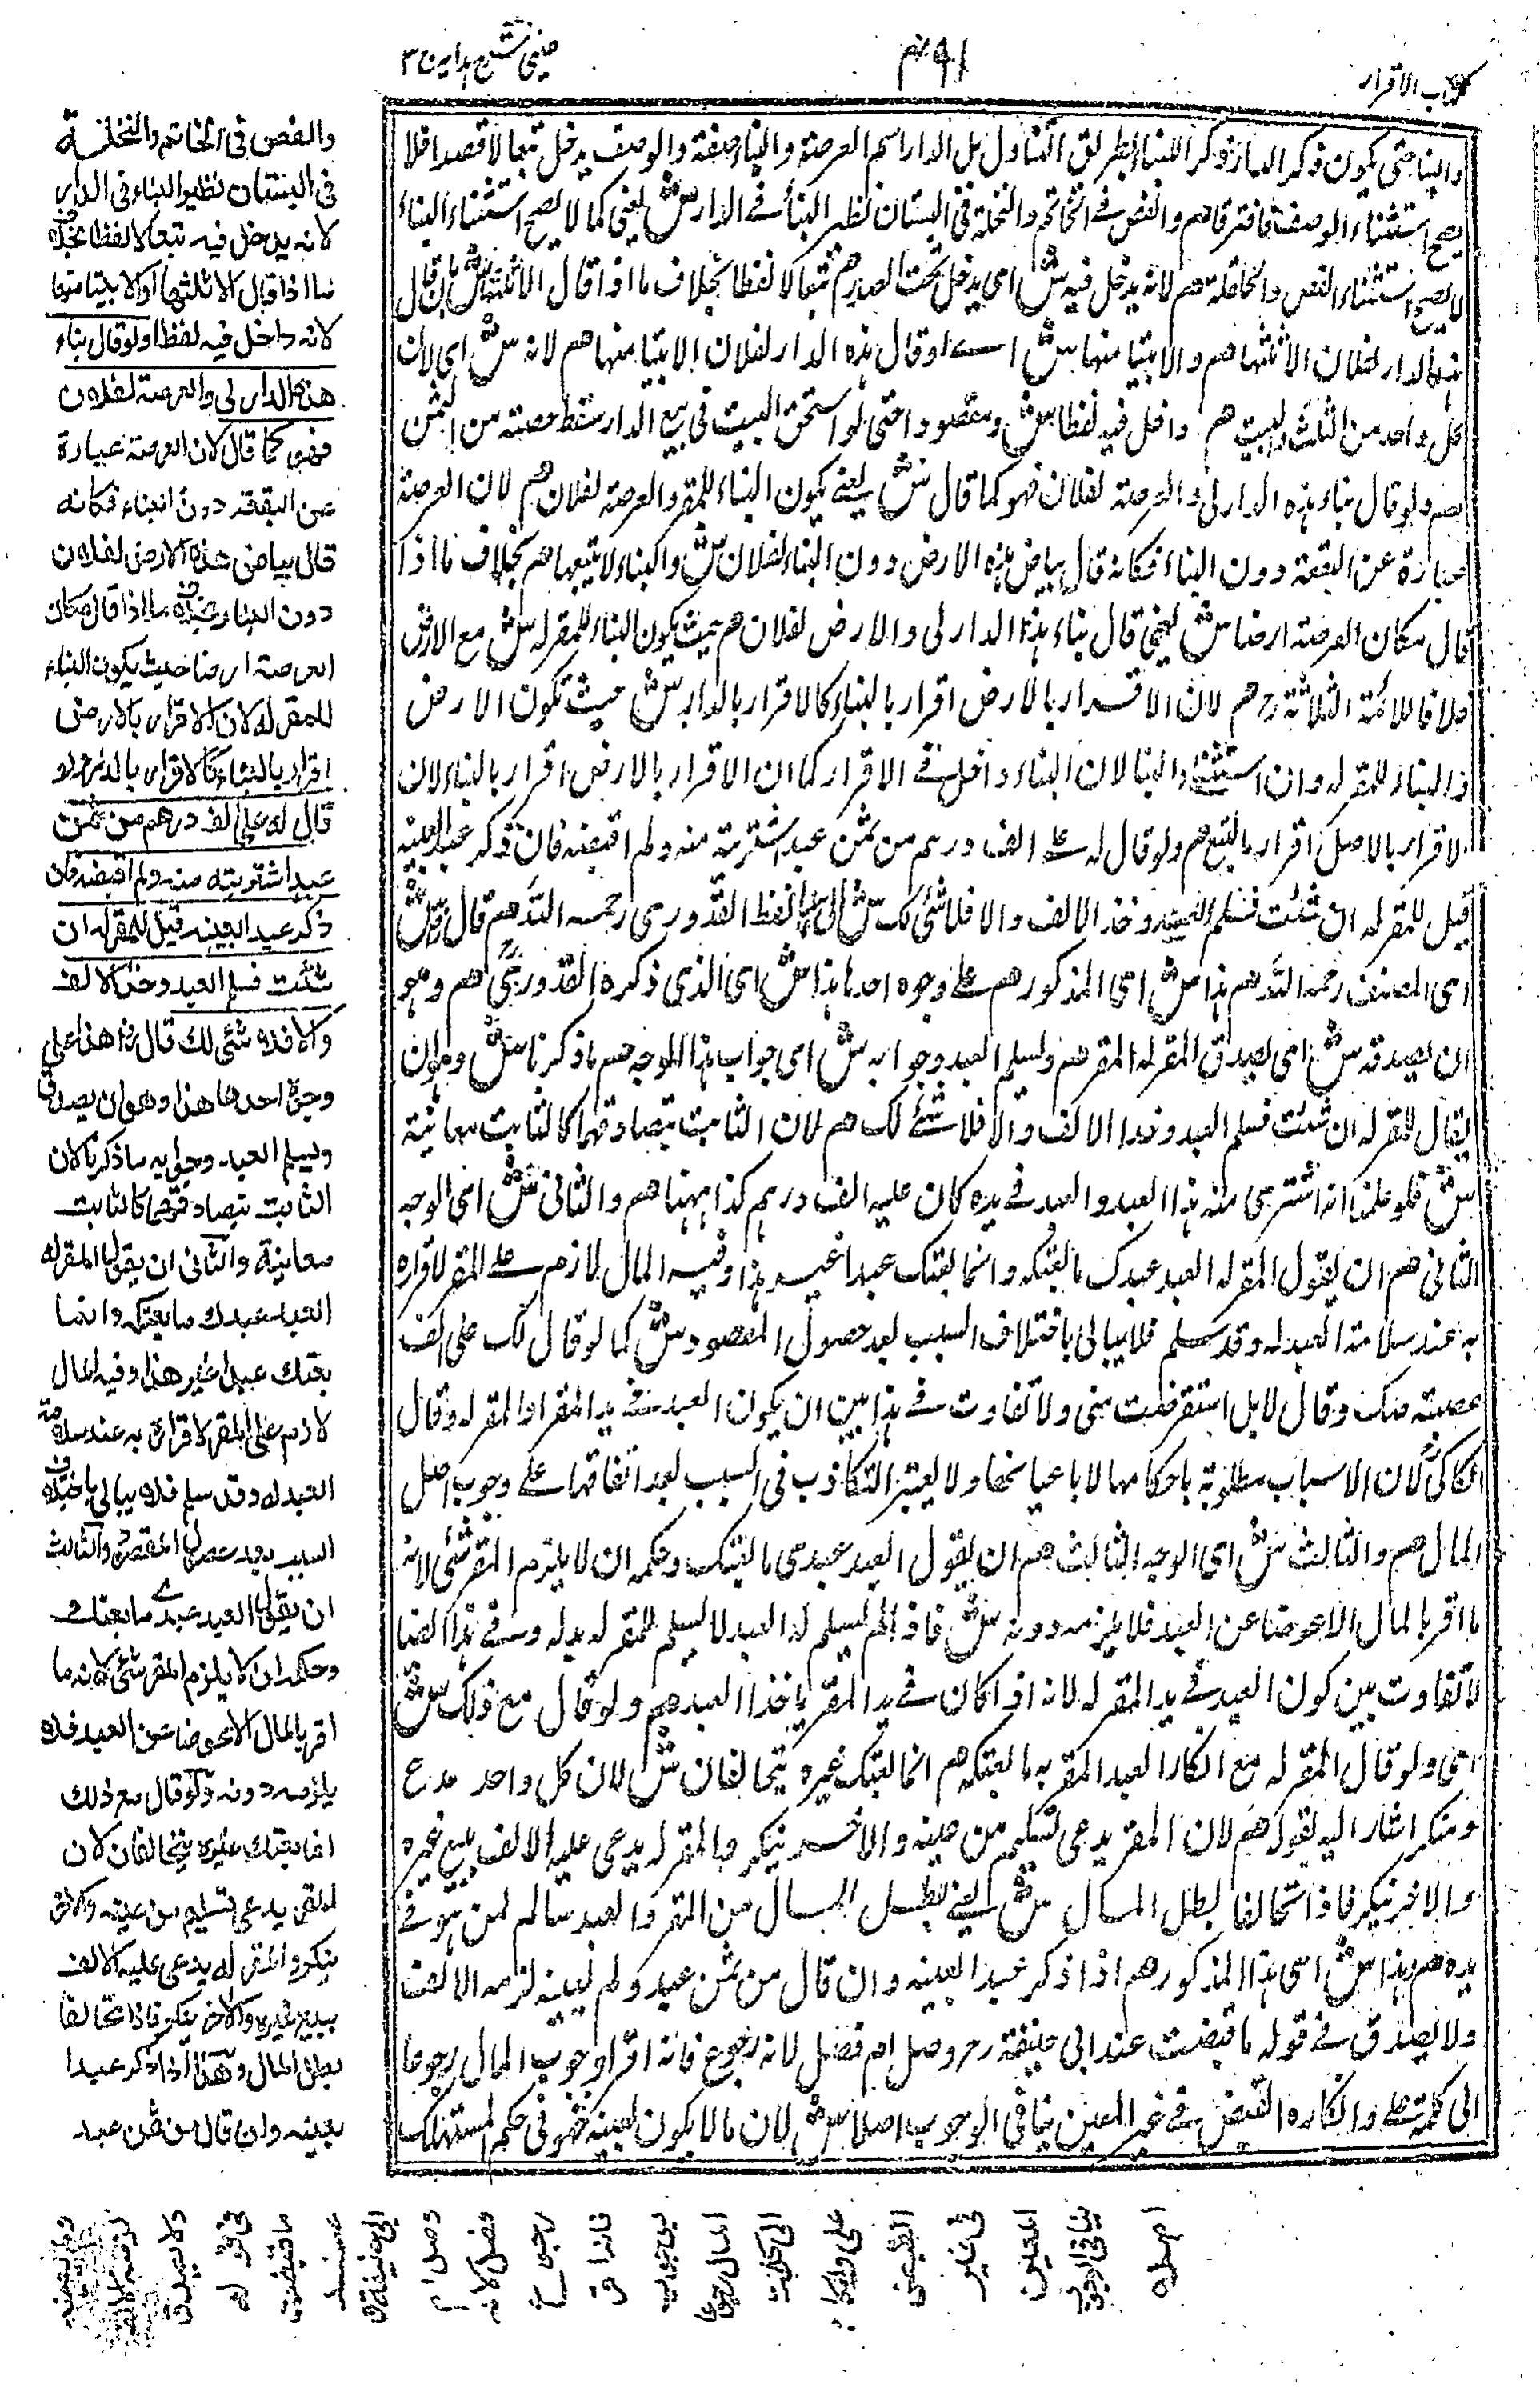 كتاب الاقرار
٤٩١
عینی شرح ہدایہ ج ٣
والبناء حتى يكون ذكر الدار ذكر اللبناء بطريق التناول بل الدار اسم العرصة والبناء صفة والوصف يدخل تبعا لا قصدا فلا
يصح استثناء الوصف فافترقا هم والفص في الخاتم والنخلة في البستان نظير البناء في الدار ش يعنى كما لا يصح استثناء البناء
لا يصح استثناء الفص والنخلة هم لانه يدخل فيه ش اى يدخل تحت الصدر هم تبعا لا لفظا بخلاف ما اذا قال الا ثلثها ش بان قال
هذه الدار لفلان الا ثلثها هم والا بيتا منها ش اے او قال هذه الدار لفلان الا بيتا منها هم لانه ش اى لان
كل واحد من الثلث والبيت هم داخل فيه لفظا ش ومقصودا حتى لو استحق البيت فى بيع الدار سقط حصته من الثمن
هم ولو قال بناء هذه الدار لى والعرصة لفلان فهو كما قال ش يعنے يكون البناء للمقر والعرصة لفلان هم لان العرصة
عبارة عن البقعة دون البناء فكانه قال بياض هذه الارض دون البناء لفلان ش والبناء لا يتبعها هم بخلاف ما اذا
قال مكان العرصة ارضا ش يعنى قال بناء هذا الدار لى والارض لفلان هم حيث يكون البناء للمقر له ش مع الارض
خلافا للائمة الثلاثة رح هم لان الاقرار بالارض اقرار بالبناء كالاقرار بالدار ش حيث تكون الارض
والبناء للمقر له وان استثنى البناء لان البناء داخل فے الاقرار كما ان الاقرار بالارض اقرار بالبناء لان
الاقرار بالاصل اقرار بالتبع هم ولو قال له علے الف درهم من ثمن عبد اشتريته منه ولم اقبضه فان ذكر عبدا بعينه
قيل للمقر له ان شئت فسلم العبد وخذ الالف والا فلا شئ لك ش الى هنا لفظ القدورى رحمه الله هم قال رح ش
اى المصنف رحمه الله هم هذا ش اى المذكور هم علے وجوه احدها هذا ش اى الذى ذكره القدورى هم وهو
ان يصدقه ش اى يصدق المقر له المقر هم ويسلم العبد وجوابه ش اى جواب هذا الوجه هم ما ذكرنا ش وهو ان
يقال للمقر له ان شئت فسلم العبد وخذ الالف والا فلا شئے لك هم لان الثابت بتصادقهما كالثابت معاينة
ش فلو علمنا انه اشترى منه هذا العبد والعبد فے يده كان عليه الف درهم كذا ههنا هم والثانى ش اى الوجه
الثانى هم ان يقول المقر له العبد عبدك ما بعتكه وانما بعتك عبدا غير هذا وفيه المال لازم علے المقر لاقراره
به عند سلامة العبد له وقد سلم فلا يبالى باختلاف السبب بعد حصول المقصود ش كما لو قال لك على الف
غصبته منك وقال لا بل استقرضت منى ولا تفاوت فے هذا بين ان يكون العبد فے يد المقر او المقر له وقال
الكاكى لان الاسباب مطلوبة باحكامها لا باعيانها ولا يعتبر التكاذب فى السبب بعد اتفاقهما علے وجوب اصل
المال هم والثالث ش اى الوجه الثالث هم ان يقول العبد عبدى ما بعتك وحكمه ان لا يلزم المقر شئى لانه
ما اقر بالمال الا عوضا عن العبد فلا يلزمه دونه ش فاذا لم يسلم له العبد لا يسلم للمقر له بدله وفے هذا ايضا
لا تفاوت بين كون العبد فے يد المقر له لانه اذا كان فے يد المقر ياخذ العبد هم ولو قال مع ذلك ش
اى ولو قال المقر له مع انكار العبد المقر به ما بعتكه هم انما بعتك غيره يتحالفان ش لان كل واحد مدع
ومنكر اشار اليه بقوله هم لان المقر يدعى تسليم من عينه والاخر ينكر والمقر له يدعى عليه الالف ببيع غيره
والاخر ينكر فاذا تحالفا بطل المال ش يعنے بطل المال من المقر والعبد سالم لمن هو فے
يده هم وهذا ش اى هذا المذكور هم اذا ذكر عبدا بعينه وان قال من ثمن عبد ولم يعينه لزمه الالف
ولا يصدق فے قوله ما قبضت عند ابى حنيفة رح وصل ام فصل لانه رجوع فانه اقر بوجوب المال رجوعا
الى كلمة علے وانكاره القبض فے غير المعين ينافى الوجوب اصلا ش لان ما لا يكون بعينه فهو فى حكم المستهلك
والفص فى الخاتم والنخلة
فى البستان نظير البناء فى الدار
لانه يدخل فيه تبعا لا لفظا بخلاف
ما اذا قال الا ثلثها او الا بيتا منها
لانه داخل فيه لفظا ولو قال بناء
هذا الدار لى والعرصة لفلان
فهو كما قال لان العرصة عبارة
عن البقعة دون البناء فكانه
قال بياض هذه الارض لفلان
دون البناء بخلاف ما اذا قال مكان
العرصة ارضا حيث يكون البناء
للمقر له لان الاقرار بالارض
اقرار بالبناء كالاقرار بالدار ولو
قال له على الف درهم من ثمن
عبد اشتريته منه ولم اقبضه فان
ذكر عبدا بعينه قيل للمقر له ان
شئت فسلم العبد وخذ الالف
والا فلا شئى لك قال رض هذا على
وجوه احدها هذا وهو ان يصدقه
ويسلم العبد وجوابه ما ذكرنا لان
الثابت بتصادقهما كالثابت
معاينة والثانى ان يقول المقر له
العبد عبدك ما بعتكه وانما
بعتك عبدا غير هذا وفيه المال
لازم على المقر لاقراره به عند سلامة
العبد له وقد سلم فلا يبالى باختلاف
السبب بعد حصول المقصود والثالث
ان يقول العبد عبدے ما بعتك و
وحكمه ان لا يلزم المقر شئى لانه ما
اقر بالمال الا عوضا عن العبد فلا
يلزمه دونه ولو قال مع ذلك
انما بعتك غيره يتحالفان لان
المقر يدعى تسليم من عينه والاخر
ينكر والمقر له يدعى عليه الالف
ببيع غيره والاخر ينكر فاذا تحالفا
بطل المال وهذا اذا ذكر عبدا
بعينه وان قال من ثمن عبد
ولم يعينه
لزمه الالف
ولا يصدق
فى قوله
ما قبضت
عند
ابى حنيفة رح
وصل ام
فصل لانه
رجوع
فانه اقر
بوجوب
المال رجوعا
الى كلمة
على وانكاره
القبض
فى غير
المعين
ينافى الوجوب
اصلا